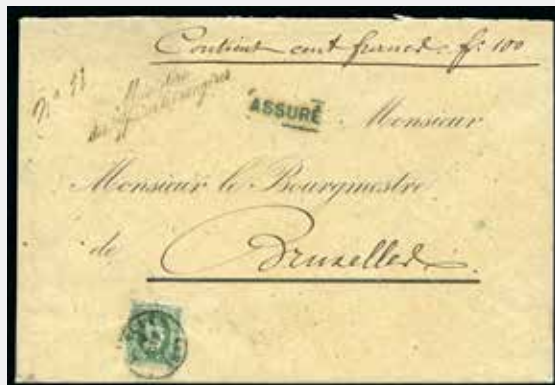 Contient cent francs. fr: 100
N° 11
Ministère
des Affaires Etrangères
ASSURÉ
Monsieur
Monsieur le Bourgmestre
de Bruxelles.